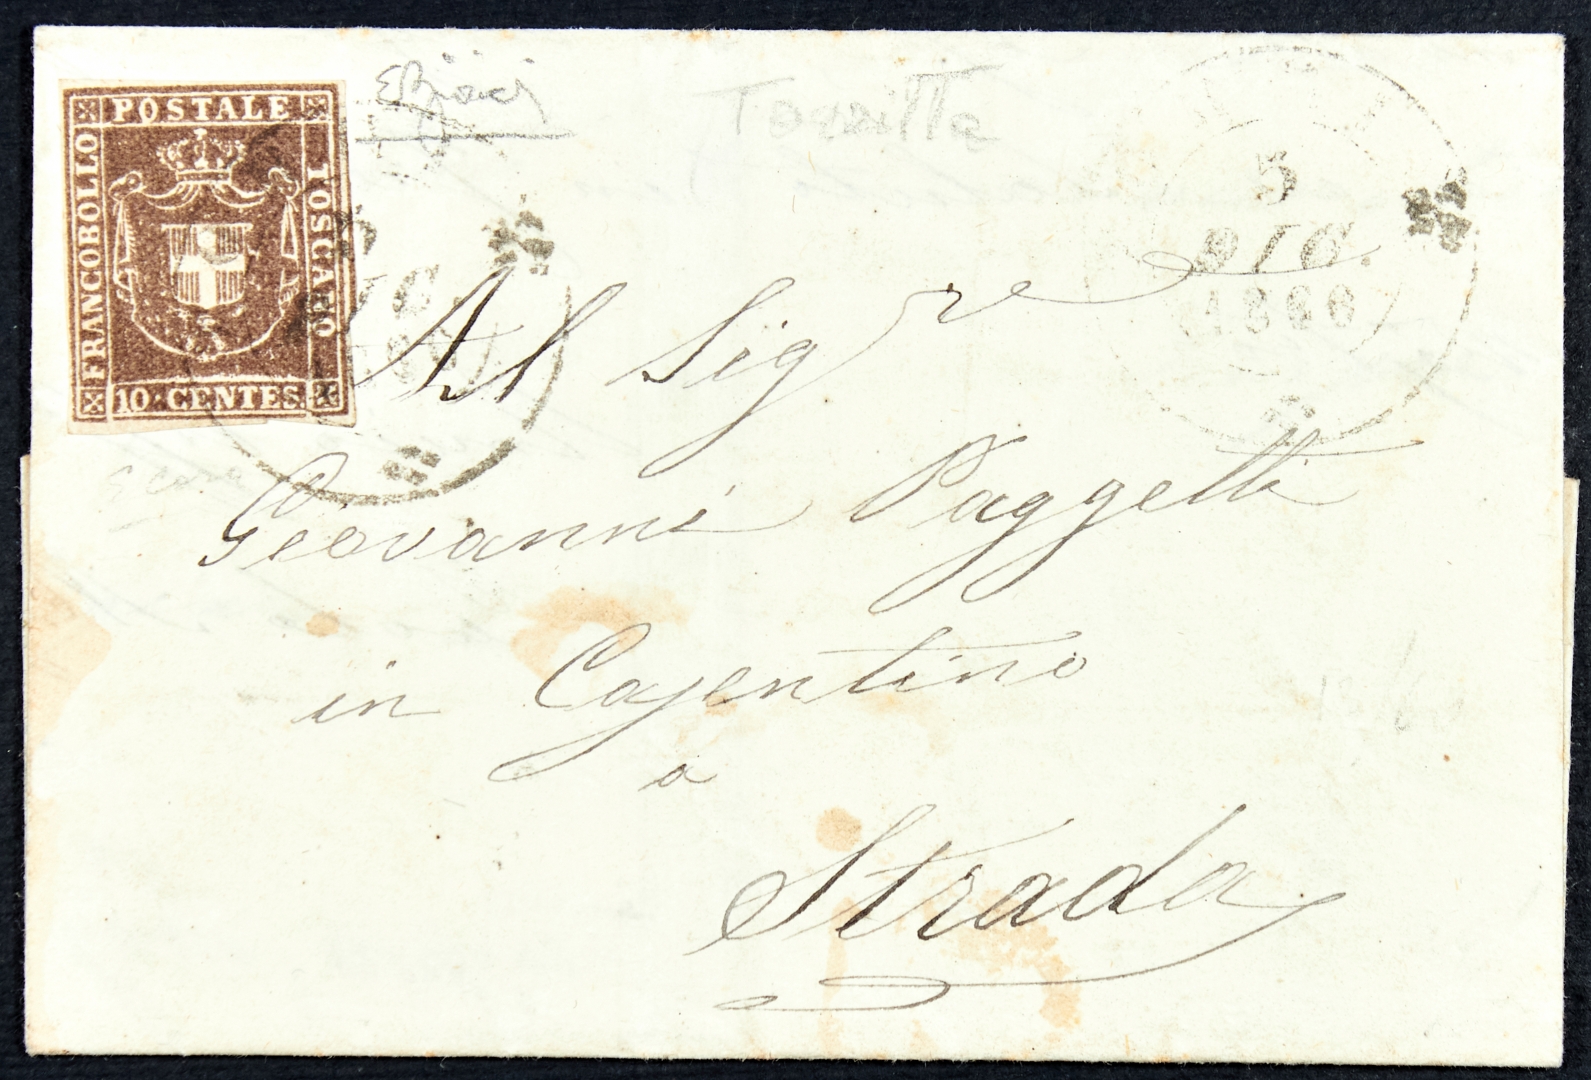 POSTALE
FRANCOBOLLO
TOSCANO
10 CENTES.
5
DIC.
1860
5
DIC.
1860
Al Sigre
Giovanni Paggetti
in Casentino
a
Strada